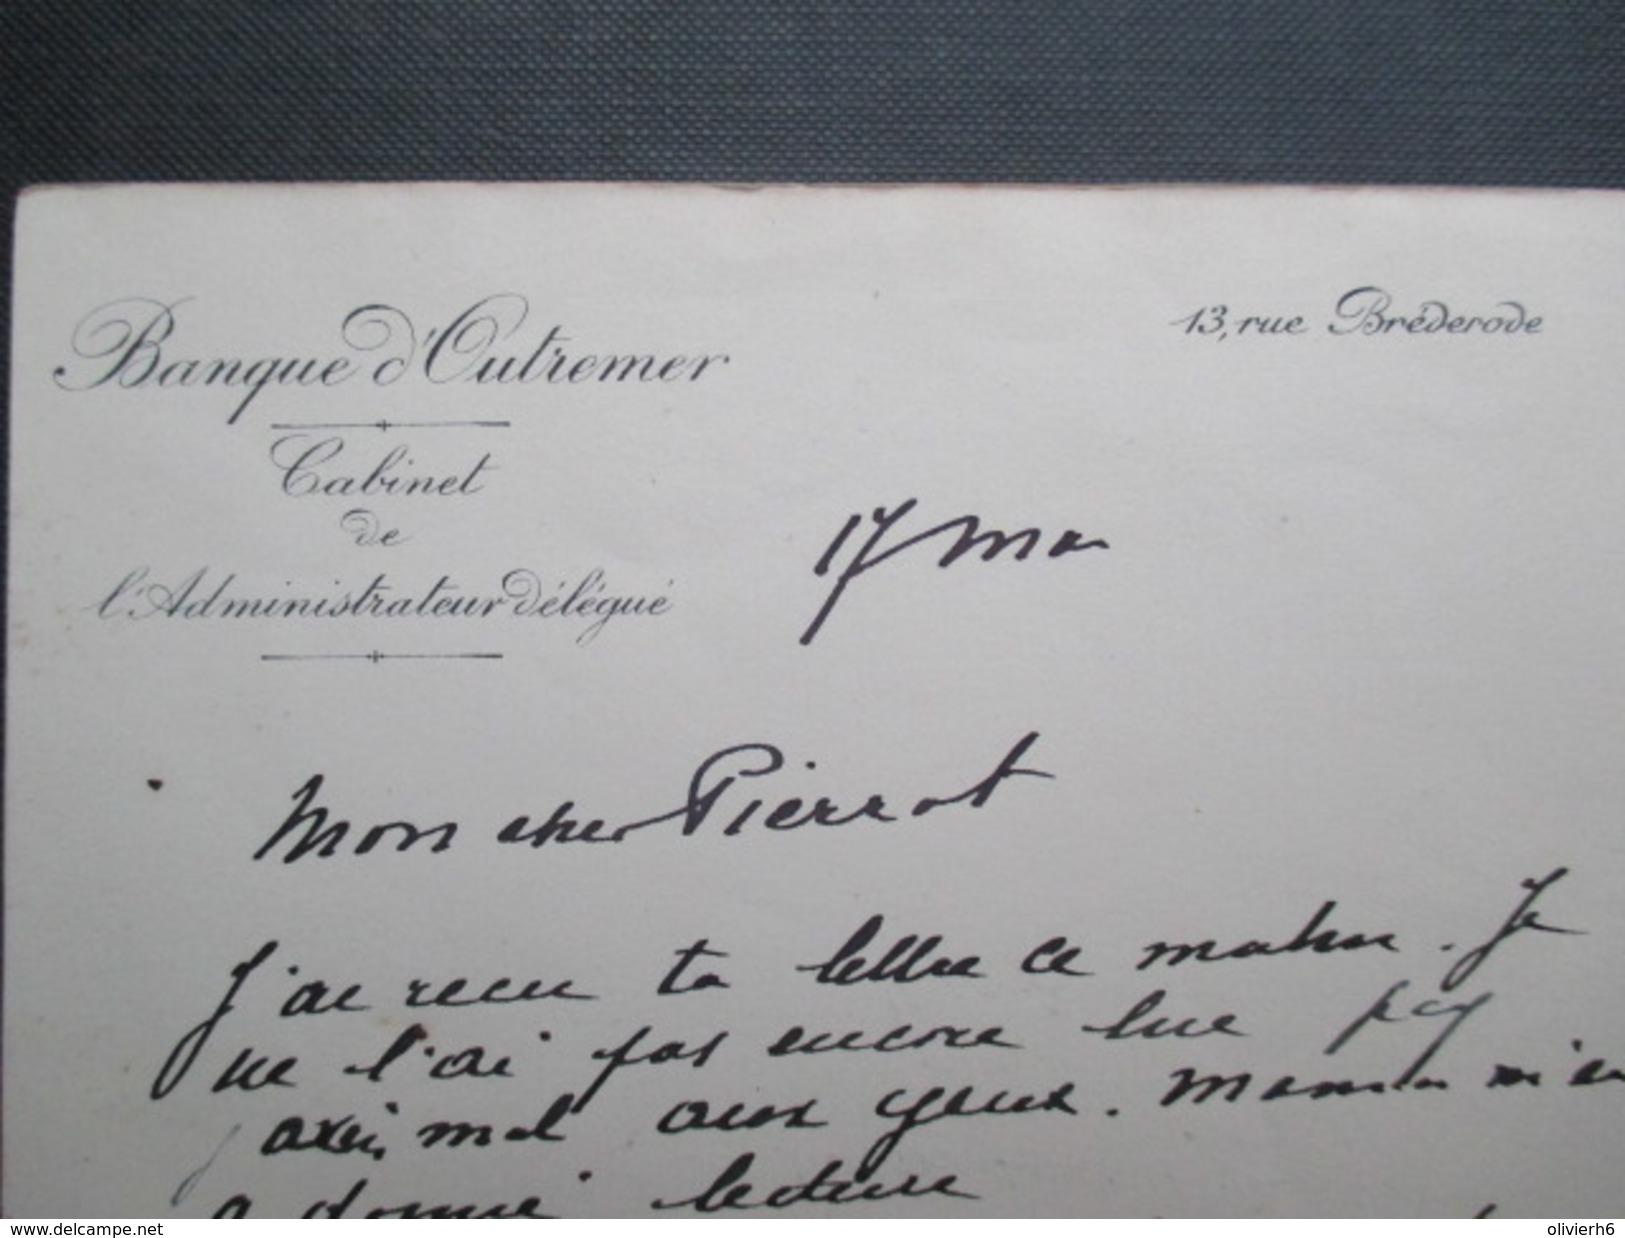 Banque d'Outremer
13, rue Bréderode
Cabinet
de
l'Administrateur Délégué
17 mai
Mon cher Pierrot
J'ai recu ta lettre ce matin. Je
ne l'ai pas encore lue
mal aux yeux. Maman m'en
a donné lecture
www.delcampe.net
olivierh6